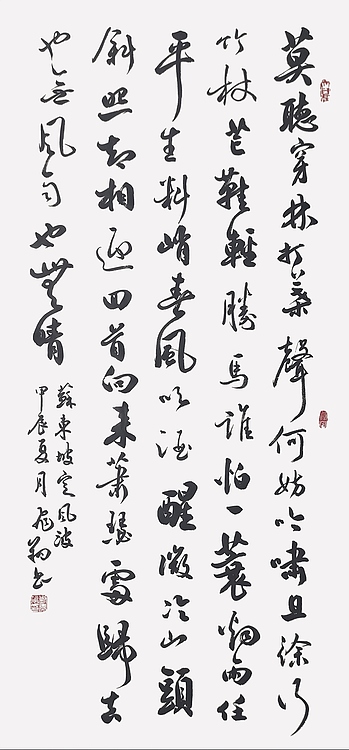 莫聽穿林打葉聲何妨吟嘯且徐行
竹杖芒鞋輕勝馬誰怕一蓑烟雨任
平生料峭春風吹酒醒微冷山頭
斜照却相迎回首向來蕭瑟處歸去
也無风雨也無晴
蘇東坡定风波
甲辰夏月